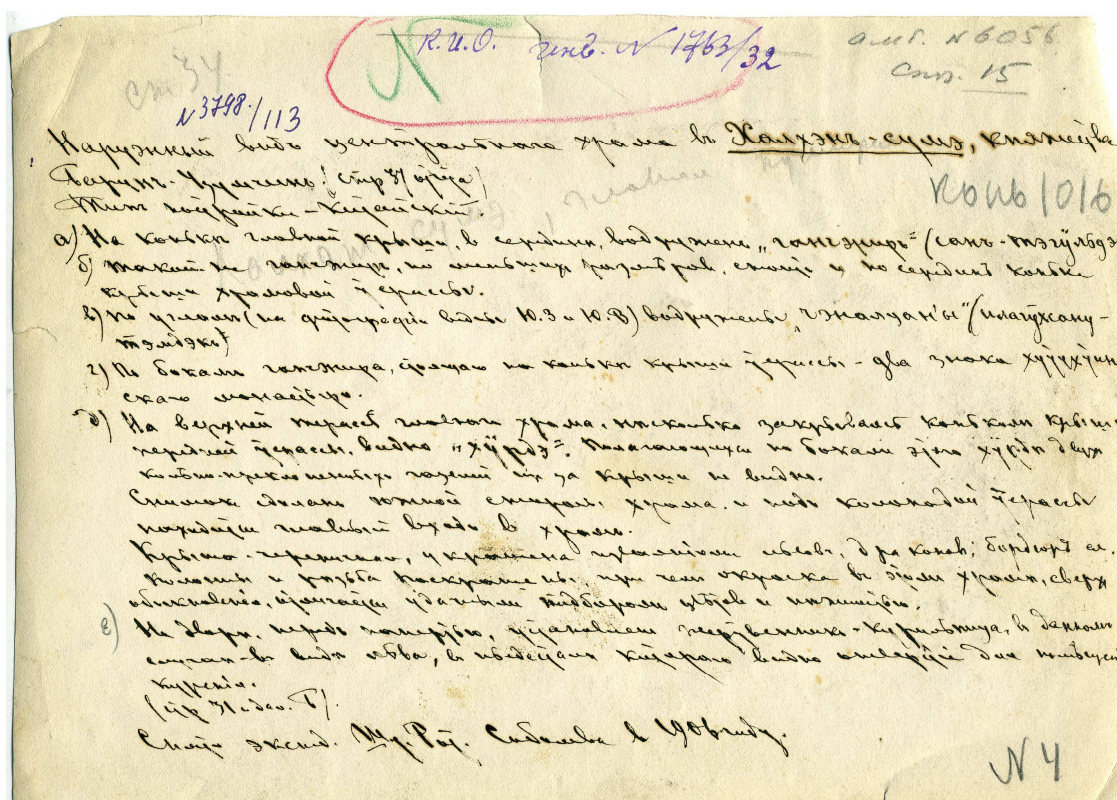 Р.И.О. инв. N 1763/32
алб. N 6056
стр. 15
ст. 34
N 3798/113
Наружный видъ центральнаго храма въ Халхэнъ-сумэ, княжества
Барунъ-Цумчинъ. (стр 31 отчета)
Типъ постройки - Китайскій.
а) На конькѣ главной крыши, в серединѣ, водруженъ „ганчжиръ" (санъ-
б) такой же ганчжиръ, но меньшихъ размѣров, стоитъ и по серединѣ конька
крыши храмовой террасы.
в) по угламъ (на фотографіи видны Ю.З и Ю.В) водружены
г) По бокамъ ганчжира, стоящаго на конькѣ крыши террасы - два знака
скаго монастыря.
д) На верхней террасѣ главнаго храма, нѣсколько закрываясь конькомъ крыши
передней террасы, видно „хÿрдэ". Полагающихся по бокамъ этого хÿрдэ двухъ
колѣно-преклоненныхъ газелей из за крыши не видно.
Снимокъ сдѣланъ с южной стороны храма, и подъ колонадой террасы
находится главный входъ в храмъ.
Крыша - черепичная, украшена драконов, бордюръ
Колонны и рѣзьба раскрашены, при чемъ окраска в этомъ храмѣ, сверхъ
обыкновенія, отличается удачнымъ подборомъ цвѣтов и
е) На дворѣ, передъ папертью, установленъ жертвенникъ-курильница, в данномъ
случаѣ - въ видѣ льва, в пьедесталѣ котораго видно отверстіе для
куренія.
(стр 31 Б).
Снято экспед. Шт. Рот. Соболева в 1906 году.
N 4